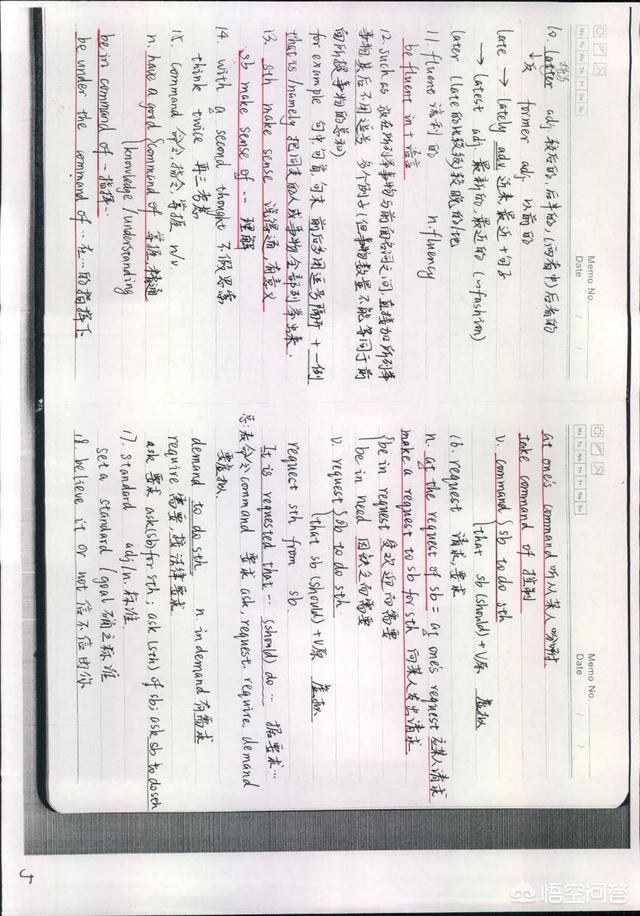 Memo No.
Date / /
Mo Tu We Th Fr Sa Su
10. latter adj. 较后的, 后半的, (两者中)后者的
反 former adj. 以前的
late → lately adv. 近来, 最近 + 句子
→ latest adj. 最新的, 最近的 (~fashion)
later (late的比较级) 较晚的/地
11. fluent 流利的 n. fluency
be fluent in + 语言
12. such as 放在所列举事物与前面名词之间, 直接加所列举
事物, 其后不用逗号, 多个例子 (但事物数量不能等同于前
面所提事物的总和)
for example 句中句前句末 前后多用逗号隔开 + 一例
that is / namely 把同类的人或事物全部列举出来.
13. sth make sense 讲得通, 有意义
sb make sense of ... 理解
14. with a second thought 不假思索
think twice 再三考虑
15. command 命令, 指令, 掌握 n/v.
n. have a good (command of 掌握, 精通
(knowledge / understanding
be in command of ... 指挥...
be under the command of ... 在...的指挥下
Memo No.
Date / /
Mo Tu We Th Fr Sa Su
at one's command 听从某人吩咐
take command of 控制
v. command { sb to do sth
that sb (should) + V原 虚拟
16. request 请求, 要求
n. at the request of sb = at one's request 应某人请求
make a request to sb for sth 向某人发出请求
{ be in request 受欢迎而需要
be in need 因缺乏而需要
v. request { sb to do sth.
that sb (should) + V原 虚拟
request sth from sb.
It is requested that ... (should) do ... 据要求...
总: 表命令 command 要求 ask, request, require, demand
要虚拟
demand to do sth n. in demand 有需求
require 需要, 按法律要求
ask 要求 ask (sb) for sth; ask (sth) of sb; ask sb to do sth
17. standard adj/n. 标准
set a standard / goal 确立标准
18. believe it or not 信不信由你
悟空问答